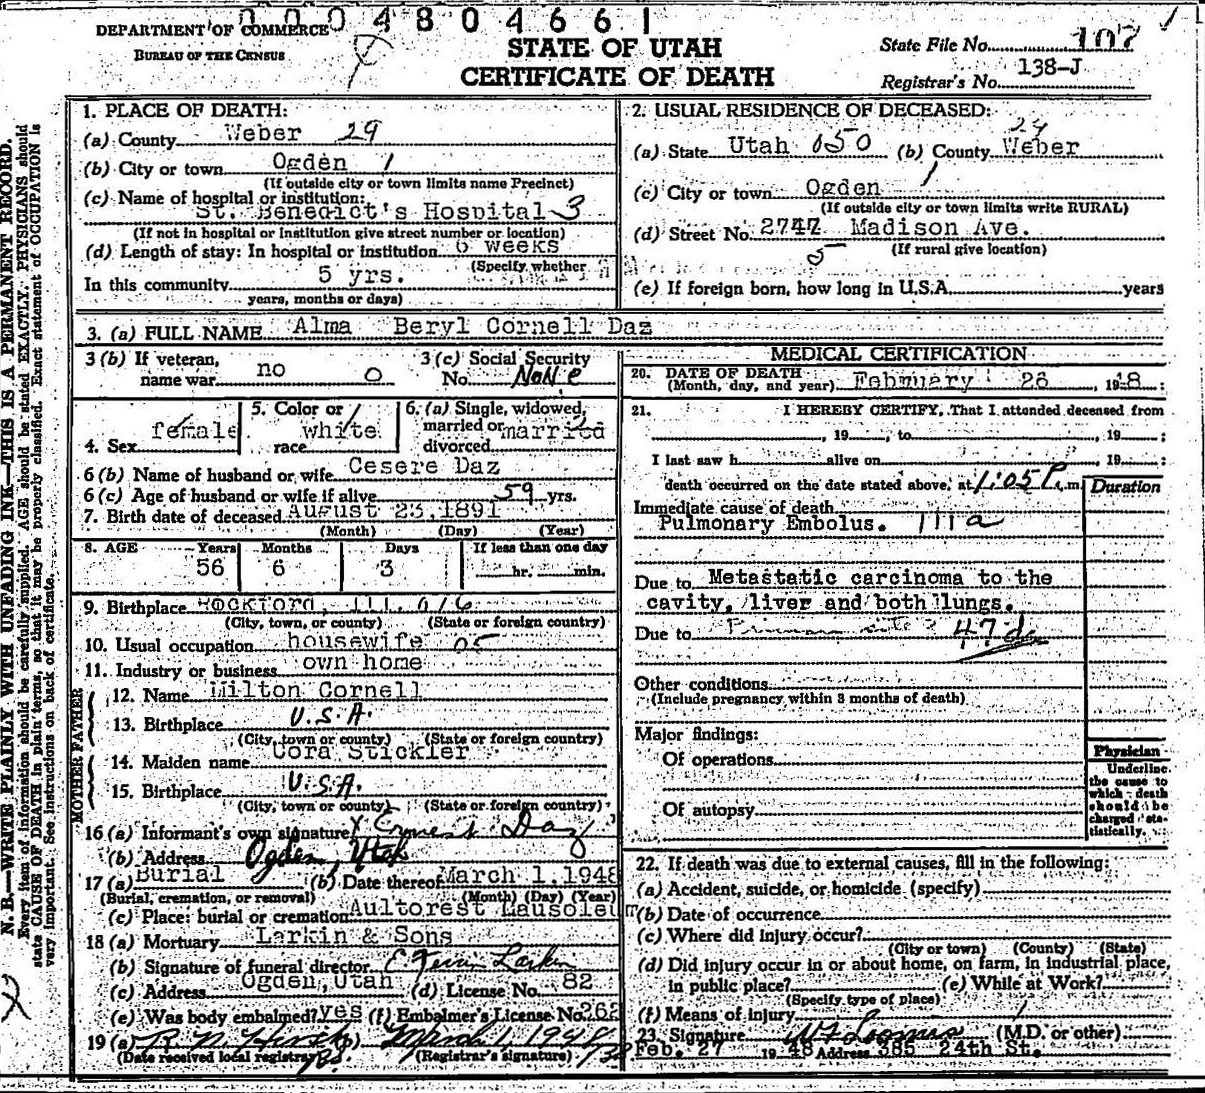 0 0 0 4 8 0 4 6 6 1
DEPARTMENT OF COMMERCE
BUREAU OF THE CENSUS
STATE OF UTAH
CERTIFICATE OF DEATH
State File No. 107
Registrar's No. 138-J
N. B.—WRITE PLAINLY WITH UNFADING INK—THIS IS A PERMANENT RECORD.
Every item of information should be carefully supplied. AGE should be stated EXACTLY. PHYSICIANS should
state CAUSE OF DEATH in plain terms, so that it may be properly classified. Exact statement of OCCUPATION is
very important. See instructions on back of certificate.
1. PLACE OF DEATH:
(a) County Weber 29
(b) City or town Ogden 1
(If outside city or town limits name Precinct)
(c) Name of hospital or institution:
St. Benedict's Hospital 3
(If not in hospital or institution give street number or location)
(d) Length of stay: In hospital or institution 6 weeks
(Specify whether
In this community 5 yrs.
years, months or days)
2. USUAL RESIDENCE OF DECEASED:
29
(a) State Utah 050 (b) County Weber
(c) City or town Ogden 1
(If outside city or town limits write RURAL)
(d) Street No. 2747 Madison Ave.
5 (If rural give location)
(e) If foreign born, how long in U.S.A. years
3. (a) FULL NAME Alma Beryl Cornell Daz
3 (b) If veteran,
name war no 0
3 (c) Social Security
No. NoNe
4. Sex female
5. Color or
race white
6. (a) Single, widowed,
married or
divorced married
6 (b) Name of husband or wife Cesere Daz
6 (c) Age of husband or wife if alive 59 yrs.
7. Birth date of deceased August 23, 1891
(Month) (Day) (Year)
8. AGE Years Months Days If less than one day
56 6 3 hr. min.
9. Birthplace Rockford, Ill.
(City, town, or county) (State or foreign country)
10. Usual occupation housewife 05
11. Industry or business own home
FATHER
12. Name Milton Cornell
13. Birthplace U.S.A.
(City, town or county) (State or foreign country)
MOTHER
14. Maiden name Cora Stickler
15. Birthplace U.S.A.
(City, town or county) (State or foreign country)
16 (a) Informant's own signature x Ernest Daz
(b) Address Ogden, Utah
17 (a) Burial (b) Date thereof March 1, 1948
(Burial, cremation, or removal) (Month) (Day) (Year)
(c) Place: burial or cremation Aultorest Mausoleum
18 (a) Mortuary Larkin & Sons
(b) Signature of funeral director Larkin
(c) Address Ogden, Utah (d) License No. 82
(e) Was body embalmed? yes (f) Embalmer's License No. 262
19 (a) March 1, 1948
(Date received local registrar) (Registrar's signature)
MEDICAL CERTIFICATION
20. DATE OF DEATH
(Month, day, and year) February 26, 1948;
21. I HEREBY CERTIFY, That I attended deceased from
, 19 , to , 19 ;
I last saw h alive on , 19 ;
death occurred on the date stated above, at 1:05 P.m.
Duration
Immediate cause of death
Pulmonary Embolus. 111a
Due to Metastatic carcinoma to the
cavity, liver and both lungs.
Due to Primary site? 47d
Other conditions
(Include pregnancy within 3 months of death)
Major findings:
Of operations
Of autopsy
Physician
Underline
the cause to
which death
should be
charged sta-
tistically.
22. If death was due to external causes, fill in the following:
(a) Accident, suicide, or homicide (specify)
(b) Date of occurrence
(c) Where did injury occur?
(City or town) (County) (State)
(d) Did injury occur in or about home, on farm, in industrial place,
in public place? (e) While at Work?
(Specify type of place)
(f) Means of injury
23. Signature Loomis (M.D. or other)
Feb. 27 1948 Address 385 24th St.